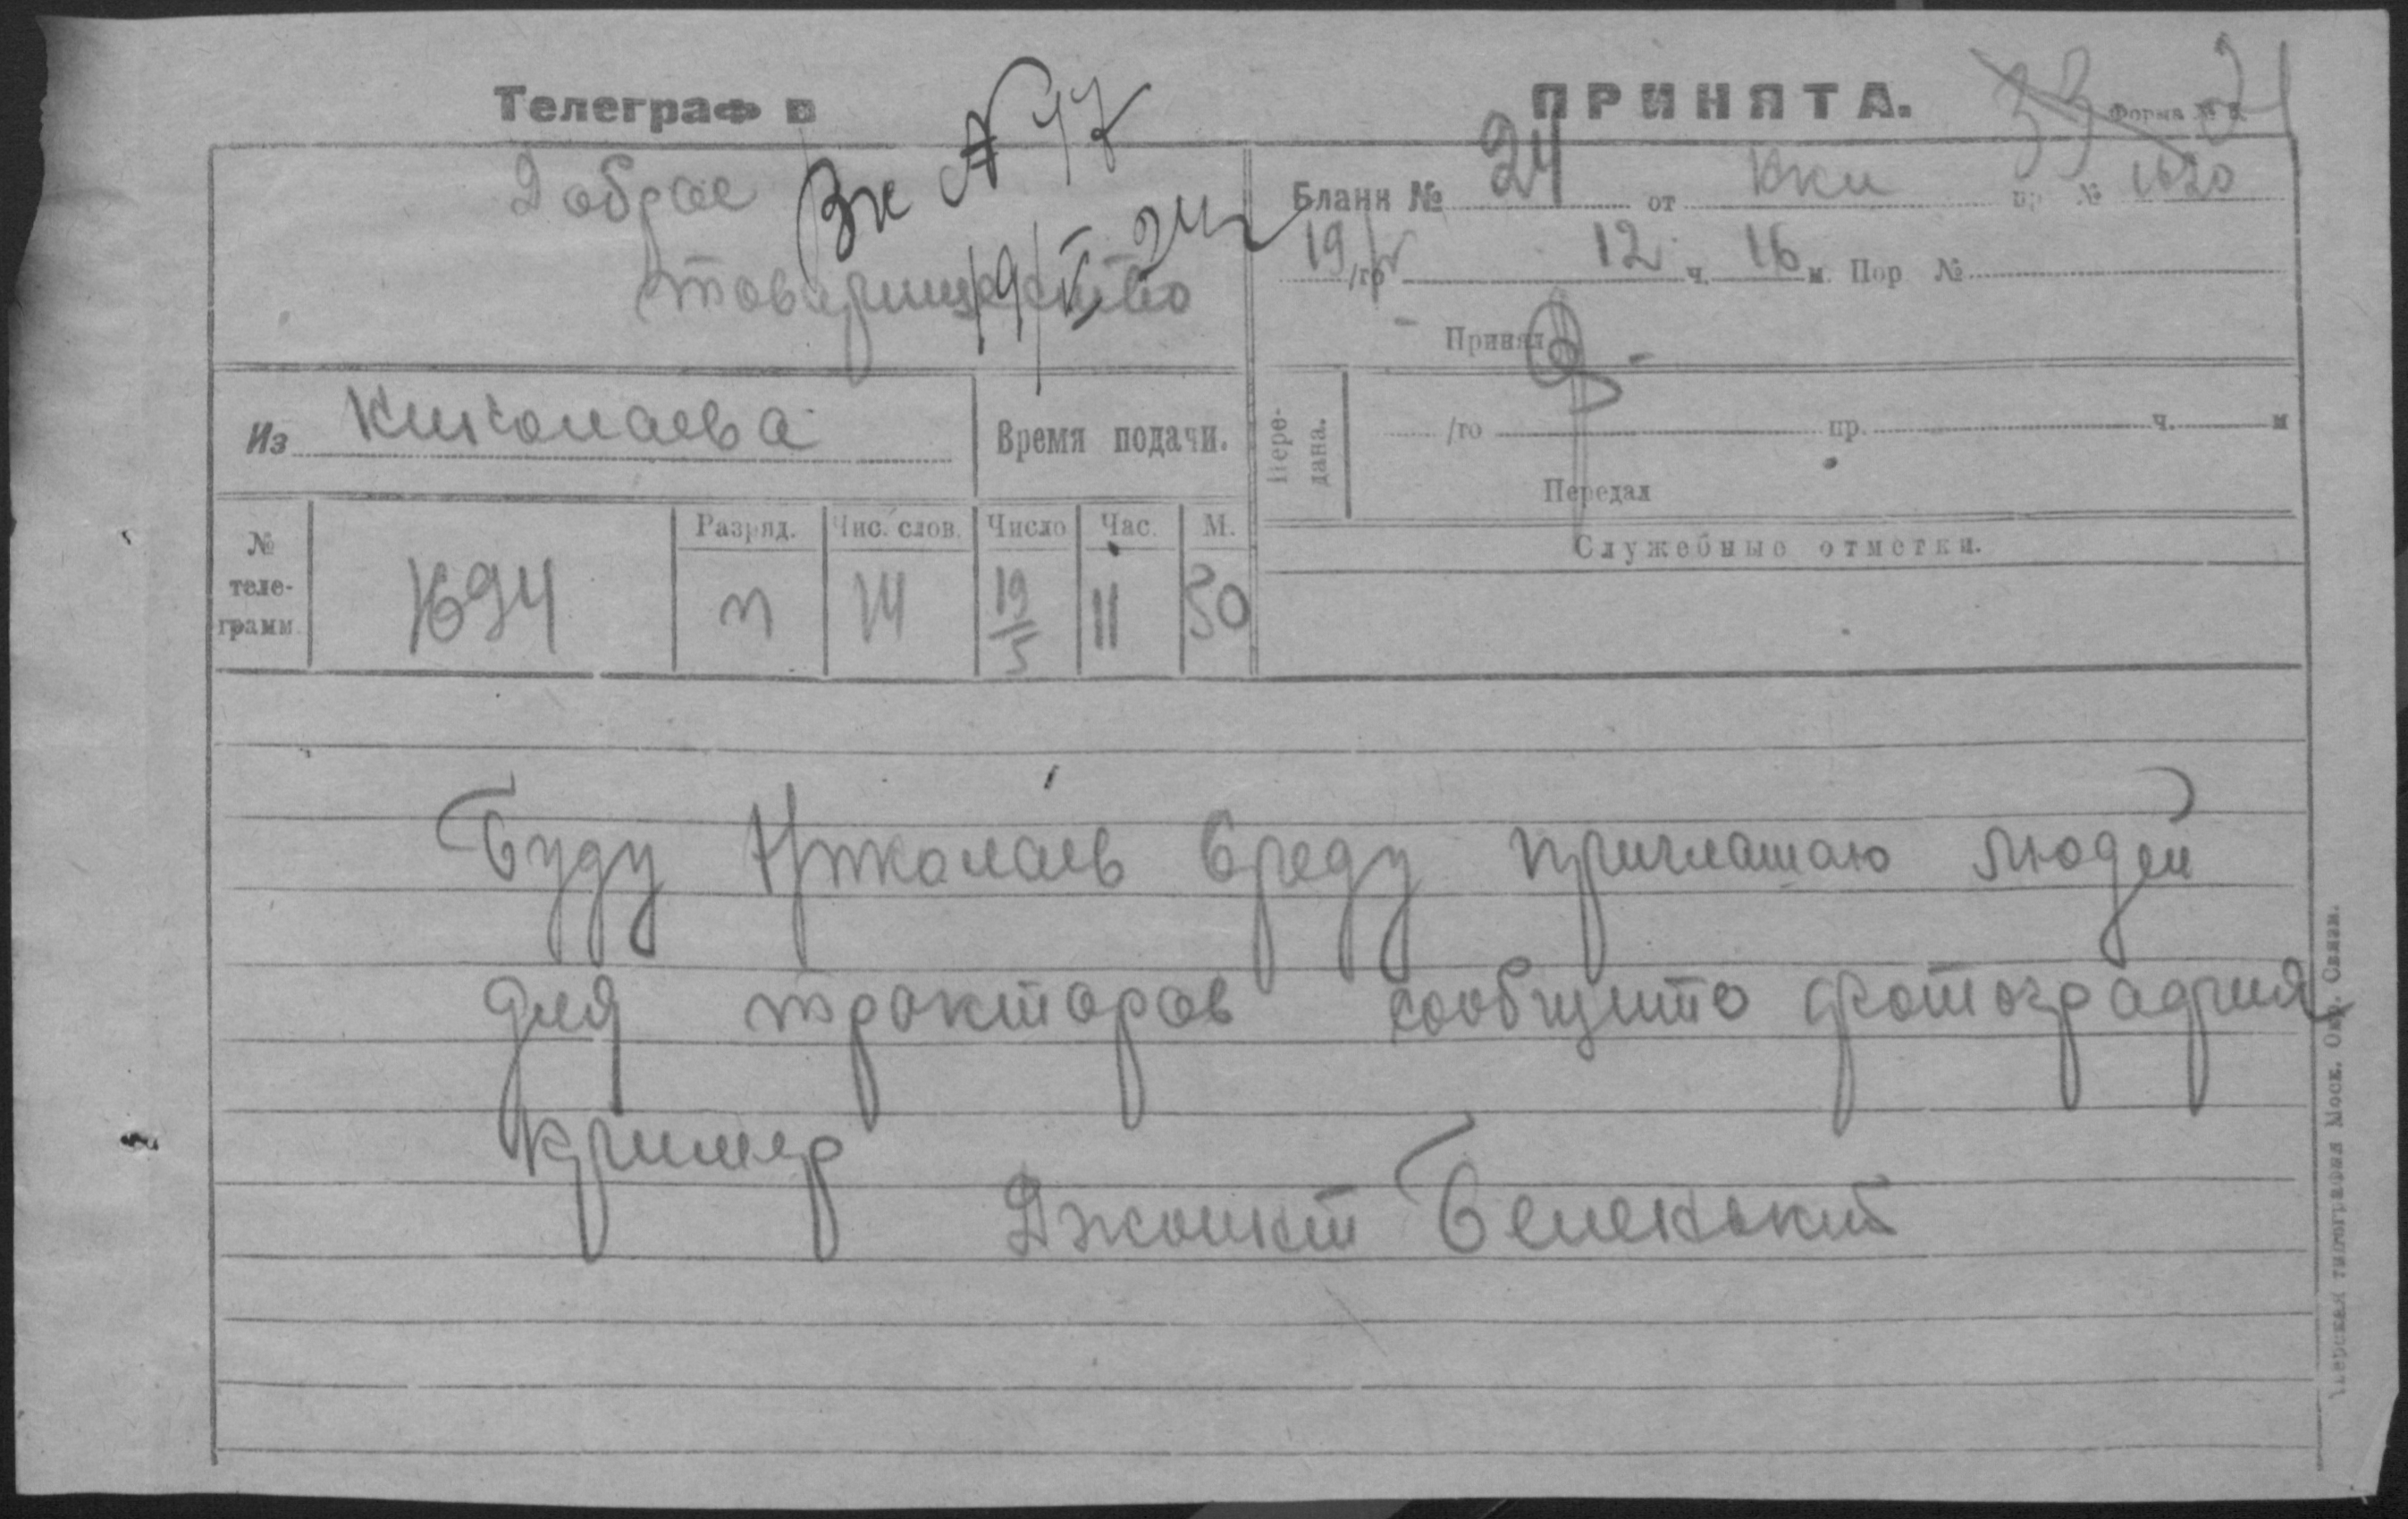 Телеграф в
ПРИНЯТА.
33 21
Форма №
Доброе
Вх № 17
товарищество
19/V 24
Бланк № 24 от Нки пр № 1620
19/го V 12 ч. 16 м. Пор №
Принял
Из Николаева
Время подачи.
Пере-
дана.
/го пр. ч. м
Передал
№
теле-
грамм.
1694
Разряд.
п
Чис. слов.
14
Число
19/5
Час.
11
М.
50
Служебные отметки.
Буду Николаев среду приглашаю людей
для тракторов сообщите фотография
кример
Джоинт Беленький
типография Моск. Окр. Связи.